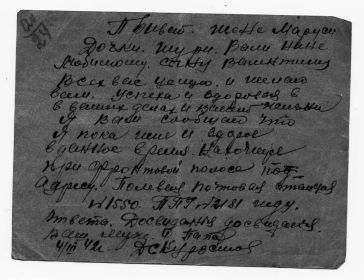 Привет. жене Маруси
Дочки. Вали Нине
Любимому. сыну Валентину
Всех вас целую. и желаю
вам. успеха и здоровья в
в ваших делах и вашей жизни
Я вам сообщаю что
Я пока жив и здоров
в данное время. нахожусь
при фронтовой полоса
Адресу. Полевая почтовая станция
№1550. жду.
ответа. Досвидания досвидания.
Ваш муж и Папа
4/III 42г.